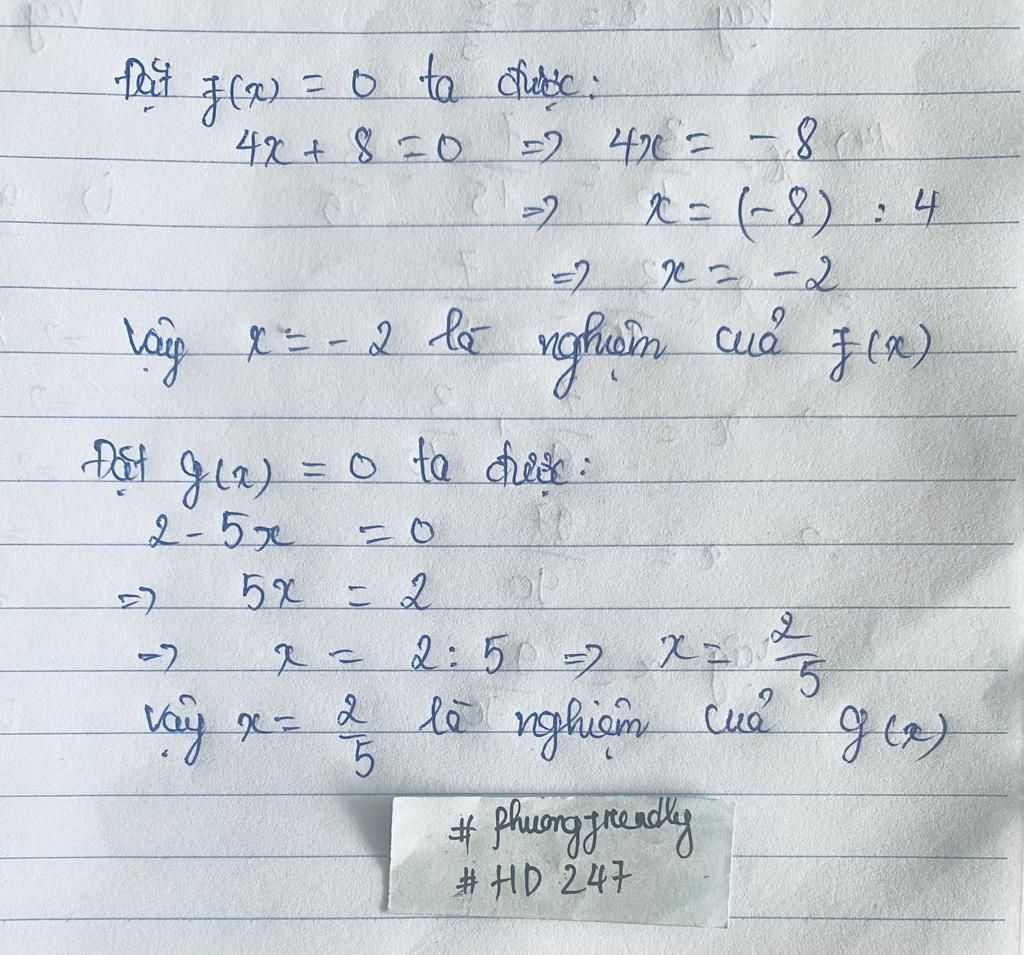 Đặt f(x) = 0 ta được:
4x + 8 = 0 => 4x = -8
=> x = (-8) : 4
=> x = -2
Vậy x = -2 là nghiệm của f(x)
Đặt g(x) = 0 ta được:
2 - 5x = 0
=> 5x = 2
=> x = 2 : 5 => x = 2/5
Vậy x = 2/5 là nghiệm của g(x)
# phuongfreendly
# HD 247